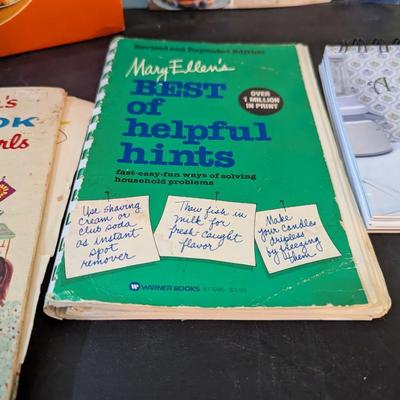 Revised and Expanded Edition
Mary Ellen's
BEST
of
helpful
hints
OVER
1 MILLION
IN PRINT
fast-easy-fun ways of solving
household problems
Use shaving
cream or
club soda
as instant
spot
remover
Thaw fish in
milk for
fresh-caught
flavor
Make
your candles
dripless
by freezing
them
WARNER BOOKS